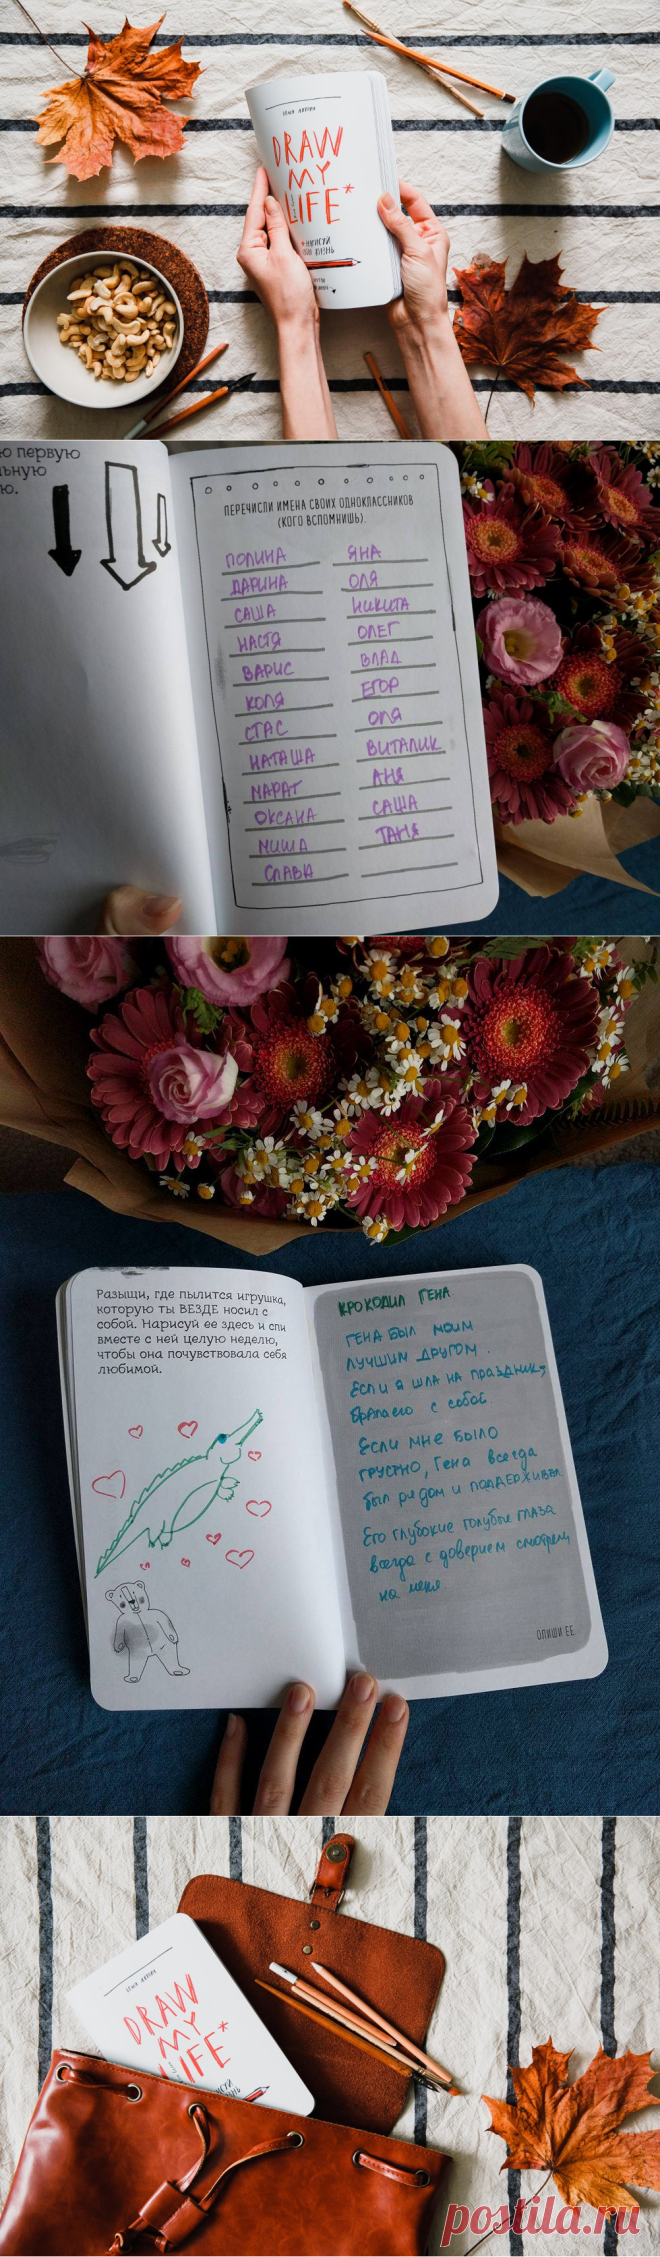 DRAW
MY
LIFE*
*НАРИСУЙ
СВОЮ ЖИЗНЬ
ю первую
ьную
ю.
ПЕРЕЧИСЛИ ИМЕНА СВОИХ ОДНОКЛАССНИКОВ
(КОГО ВСПОМНИШЬ).
ПОЛИНА
ДАРИНА
САША
НАСТЯ
БАРИС
КОЛЯ
СТАС
НАТАША
МАРАТ
ОКСАНА
МИША
СЛАВА
ЯНА
ОЛЯ
НИКИТА
ОЛЕГ
ВЛАД
ЕГОР
ОЛЯ
ВИТАЛИК
АНЯ
САША
ТАНЯ
Разыщи, где пылится игрушка,
которую ты ВЕЗДЕ носил с
собой. Нарисуй ее здесь и спи
вместе с ней целую неделю,
чтобы она почувствовала себя
любимой.
КРОКОДИЛ ГЕНА
ГЕНА БЫЛ МОИМ
ЛУЧШИМ ДРУГОМ.
Если я шла на праздник,
брала его с собой.
Если мне было
грустно, Гена всегда
был рядом и поддерживал
Его глубокие голубые глаза
всегда с доверием смотрели
на меня
ОПИШИ ЕЕ
DRAW
MY
LIFE*
postila.ru